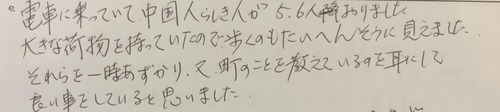 。電車に乗っていて中国人らしき人が5.6人降おりました
大きな荷物を持っていたので歩くのもたいへんそうに見えました.
それらを一時あずかり、又、町のことを教えているのを耳にして
良い事をしていると思いました.